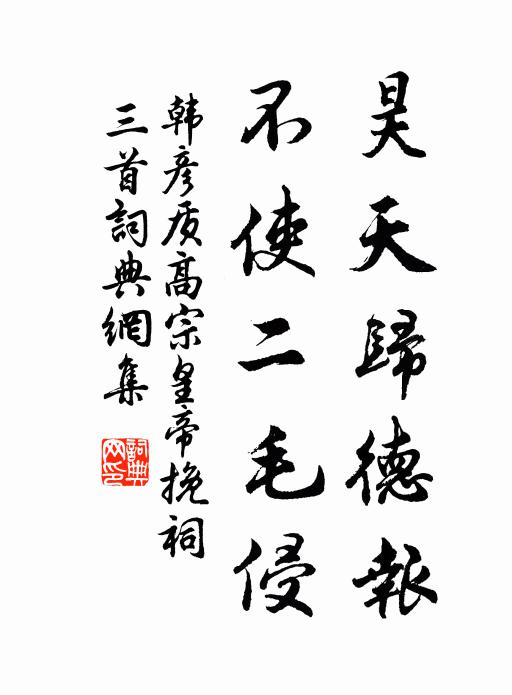 昊天歸德報
不使二毛侵
韩彦质高宗皇帝挽祠
三首詞典網集
詞典網印